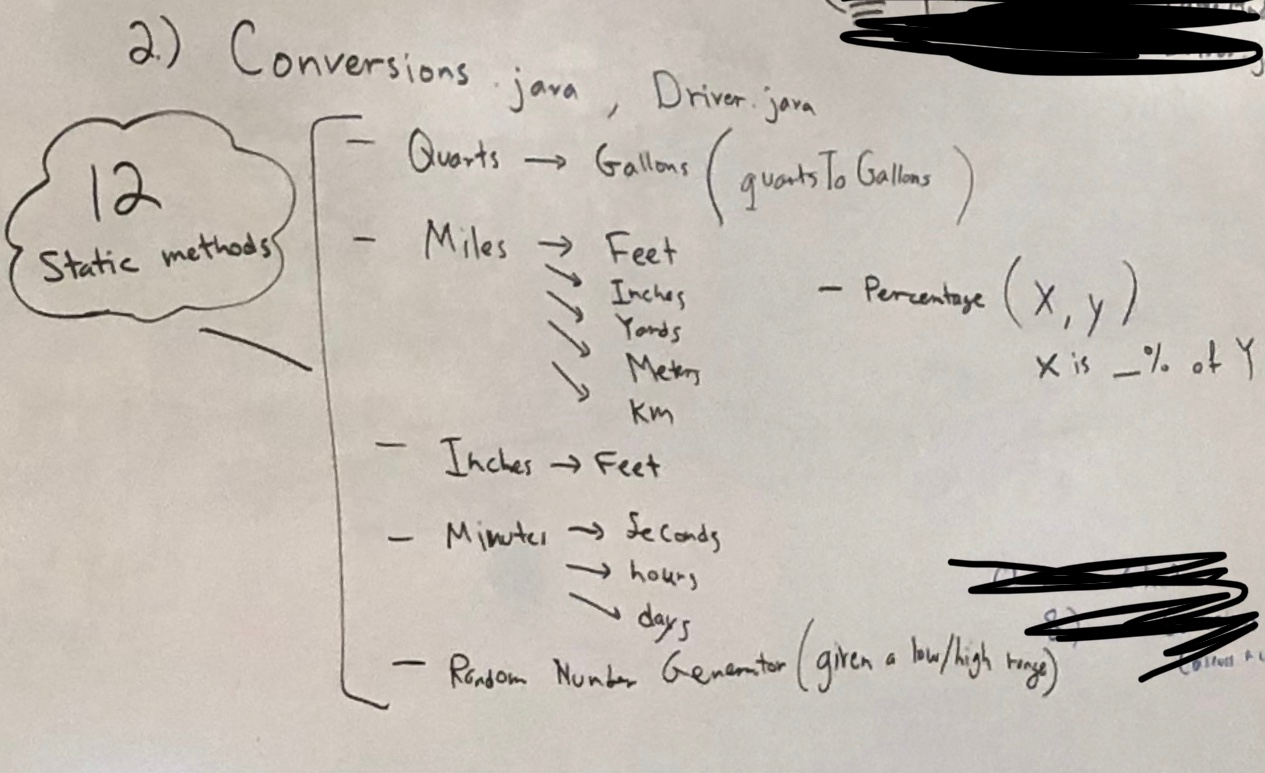 2.) Conversions.java, Driver.java
12
Static methods
- Quarts → Gallons (quartsToGallons)
- Miles → Feet
→ Inches
→ Yards
→ Meters
→ Km
- Percentage (X, y)
X is _% of Y
- Inches → Feet
- Minutes → Seconds
→ hours
→ days
- Random Number Generator (given a low/high range)